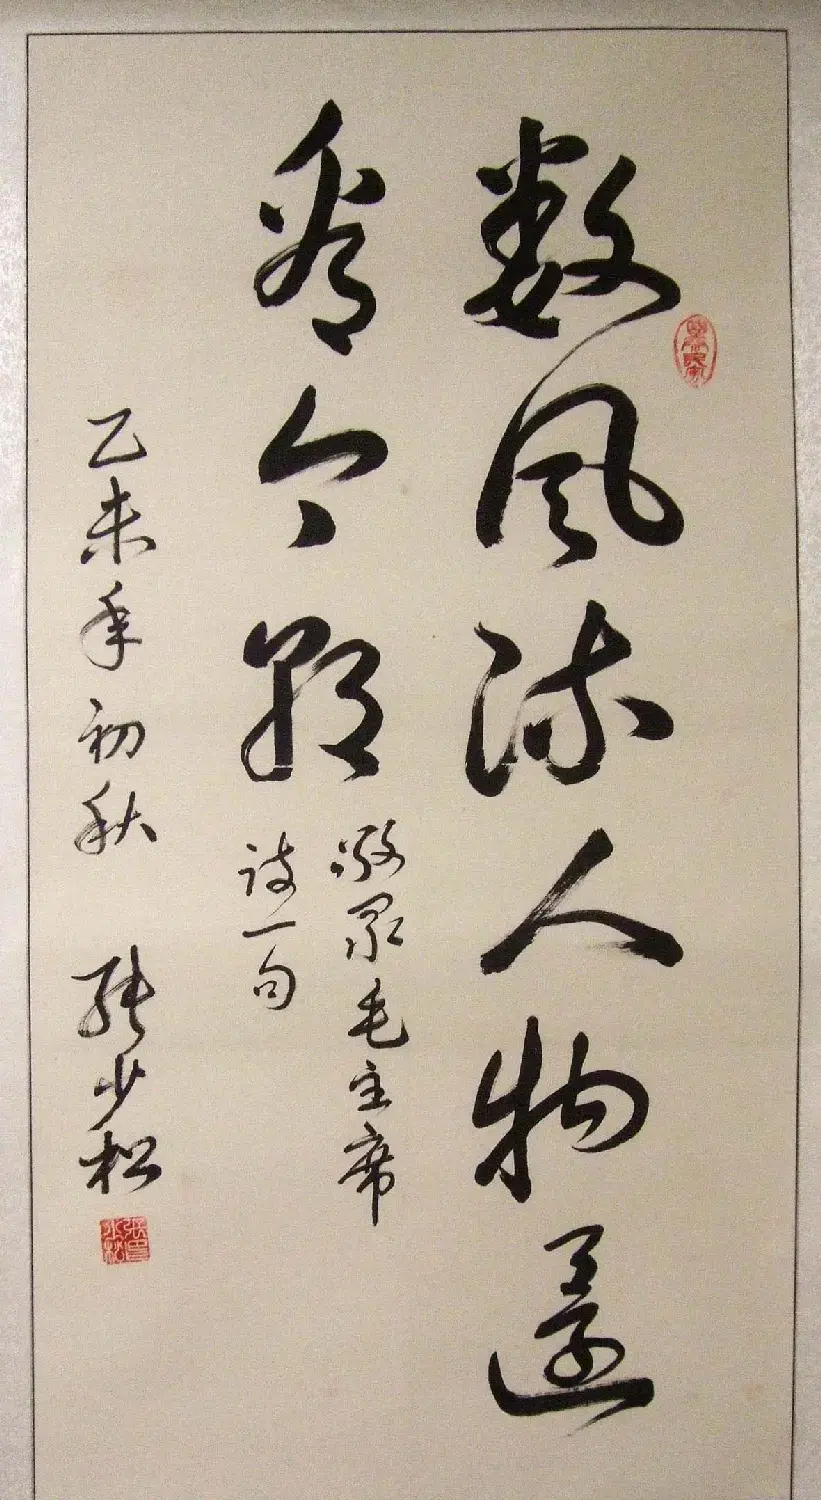 数风流人物還
看今朝
敬录毛主席
诗一句
乙未年初秋 张少松